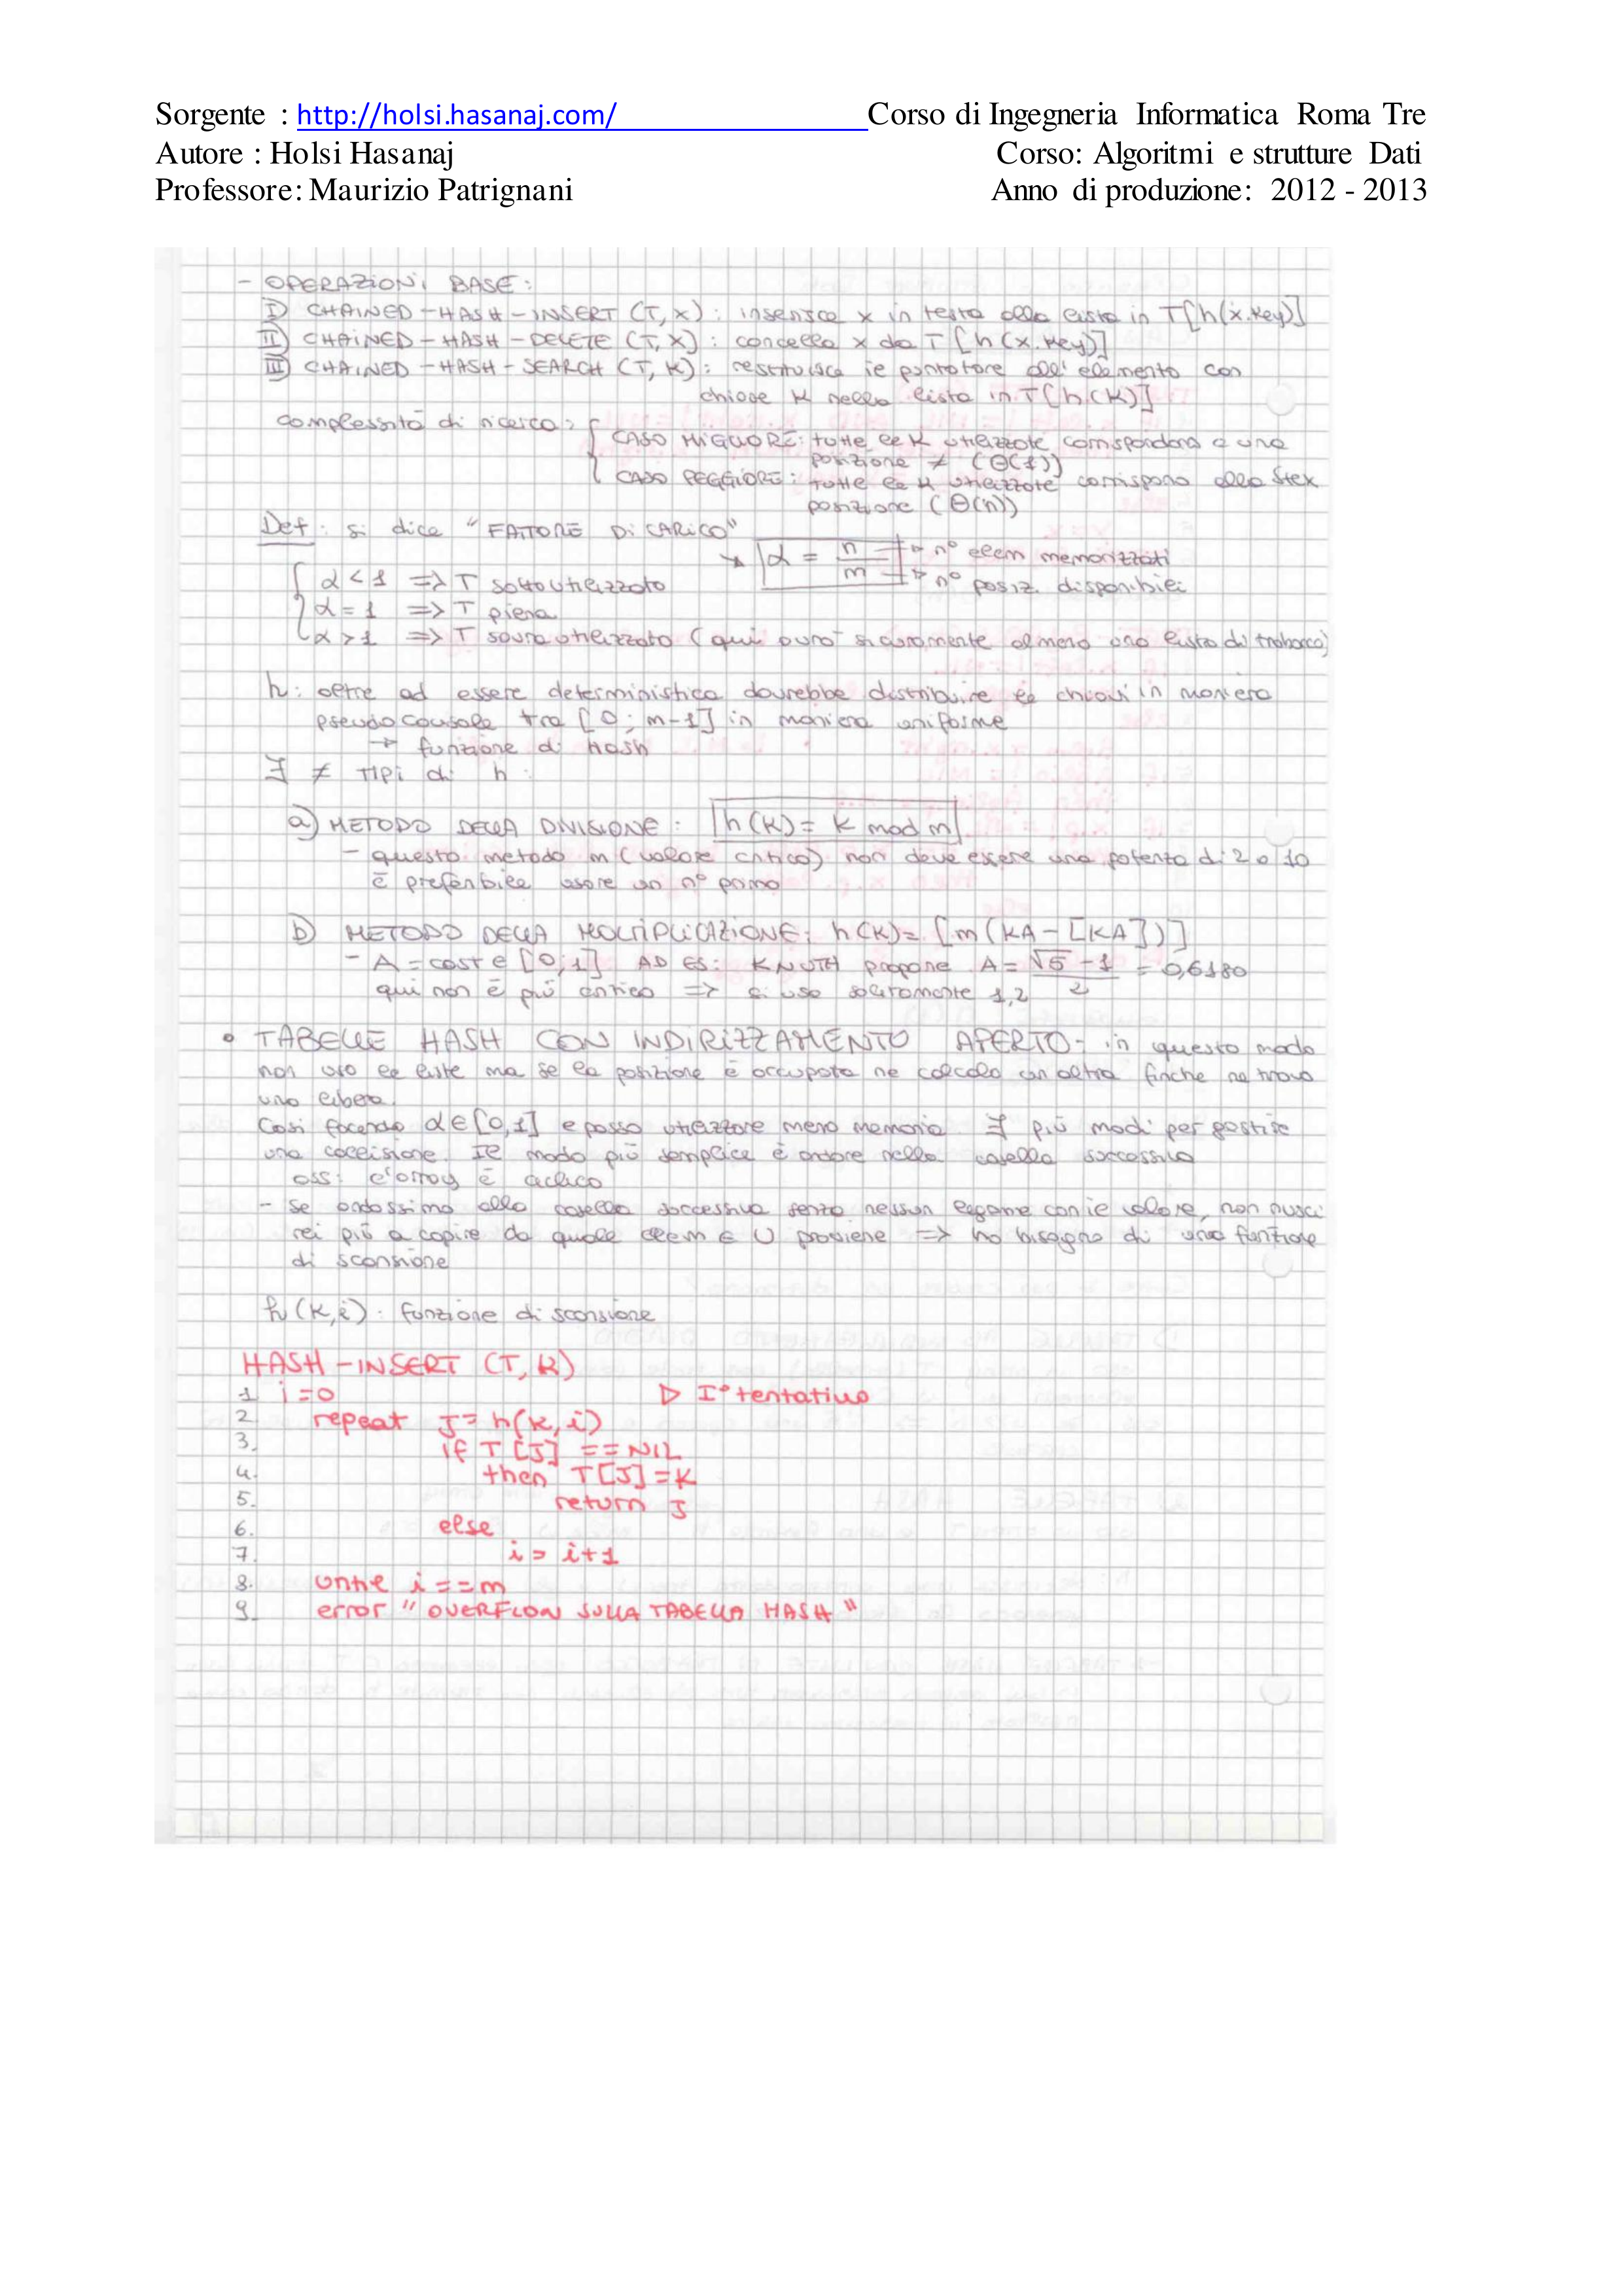 Sorgente : http://holsi.hasanaj.com/ Corso di Ingegneria Informatica Roma Tre
Autore : Holsi Hasanaj Corso: Algoritmi e strutture Dati
Professore: Maurizio Patrignani Anno di produzione: 2012 - 2013
- OPERAZIONI BASE:
I) CHAINED-HASH-INSERT (T, x): inserisce x in testa alla lista in T[h(x.key)]
II) CHAINED-HASH-DELETE (T, x): cancella x da T[h(x.key)]
III) CHAINED-HASH-SEARCH (T, K): restituisce il puntatore all'elemento con
chiave K nella lista in T[h(K)]
complessità di ricerca:
CASO MIGLIORE: tutte le K utilizzate corrispondono a una
posizione ≠ (Θ(1))
CASO PEGGIORE: tutte le K utilizzate corrispono alla stex
posizione (Θ(n))
Def: si dice "FATTORE DI CARICO"
α = n/m → n° elem memorizzati
→ n° posiz. disponibili
α < 1 => T sottoutilizzato
α = 1 => T piena
α > 1 => T sovrautilizzato (qui avrò sicuramente almeno una lista di trabocco)
h: oltre ad essere deterministica dovrebbe distribuire le chiavi in maniera
pseudocausale tra [0; m-1] in maniera uniforme
→ funzione di hash
∃ ≠ TIPI di h:
a) METODO DELLA DIVISIONE: h(K) = K mod m
- questo metodo m (valore critico) non deve essere una potenza di 2 o 10
è preferibile usare un n° primo
b) METODO DELLA MOLTIPLICAZIONE: h(K) = [m(KA - [KA])]
- A = cost ∈ [0,1] AD ES: KNUTH propone A = √5 - 1 / 2 = 0,6180
qui non è più critico => si usa solitamente 1,2
• TABELLE HASH CON INDIRIZZAMENTO APERTO - in questo modo
non uso le liste ma se la posizione è occupata ne calcolo un altra finche ne trovo
una libera.
Così facendo α ∈ [0,1] e posso utilizzare meno memoria ∃ più modi per gestire
una collisione. Il modo più semplice è andare nella casella successiva
oss: l'array è ciclico
- Se andassimo alla casella successiva senza nessun legame con il valore, non rusci
rei più a capire da quale elem ∈ U proviene => ho bisogno di una funzione
di scansione
h(K,i): funzione di scansione
HASH-INSERT (T, K)
1 i=0 ▷ I° tentativo
2. repeat J = h(K,i)
3. if T[J] == NIL
4. then T[J] = K
5. return J
6. else
7. i = i+1
8. until i == m
9. error "OVERFLOW SULLA TABELLA HASH"